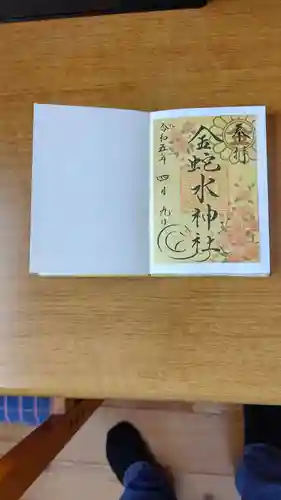 奉拝
金蛇水神社
令和五年 四月 九日